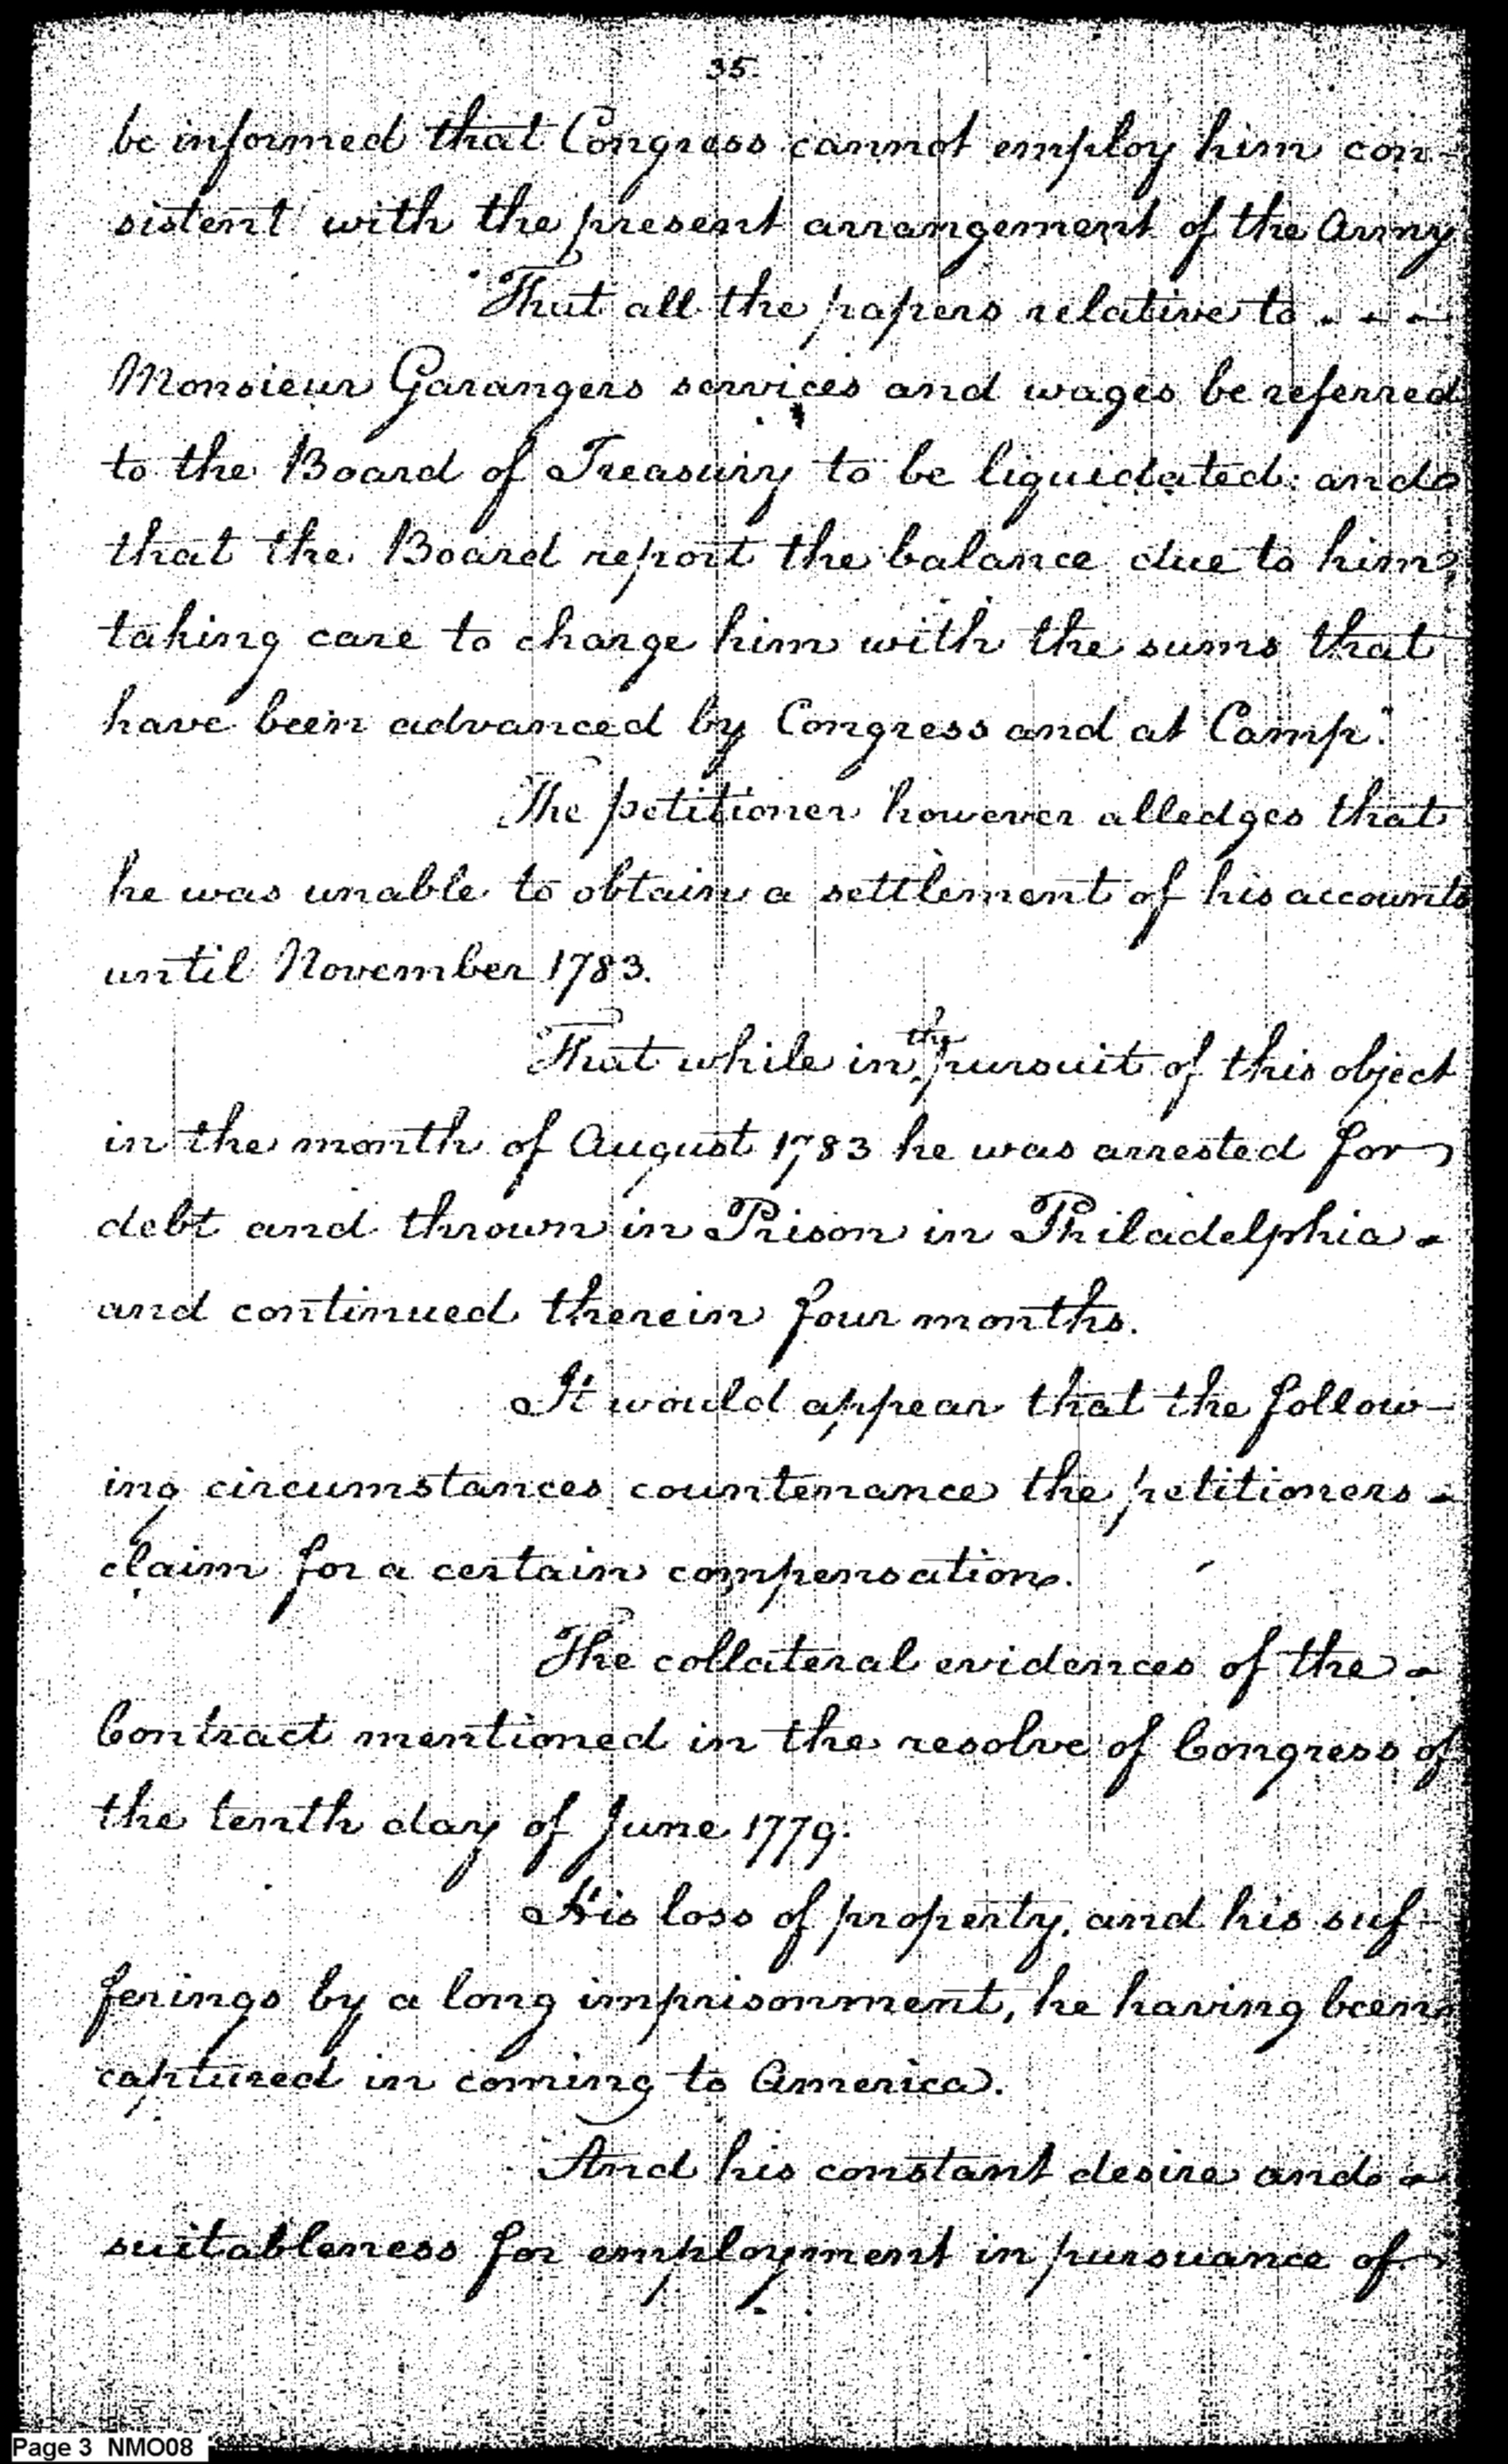 35.
be informed that Congress cannot employ him con-
sistent with the present arrangement of the Army
"That all the papers relative to - - -
Monsieur Garangers services and wages be referred
to the Board of Treasury to be liquidated: and
that the Board report the balance due to him,
taking care to charge him with the sums that
have been advanced by Congress and at Camp."
The petitioner however alledges that
he was unable to obtain a settlement of his accounts
until November 1783.
That while in the pursuit of this object
in the month of August 1783 he was arrested for
debt and thrown in Prison in Philadelphia -
and continued therein four months.
It would appear that the follow-
ing circumstances countenance the petitioners -
claim for a certain compensation.
The collateral evidences of the -
Contract mentioned in the resolve of Congress of
the tenth day of June 1779.
His loss of property, and his suf-
ferings by a long imprisonment, he having been
captured in coming to America.
And his constant desire and -
suitableness for employment in pursuance of
Page 3 NMO08